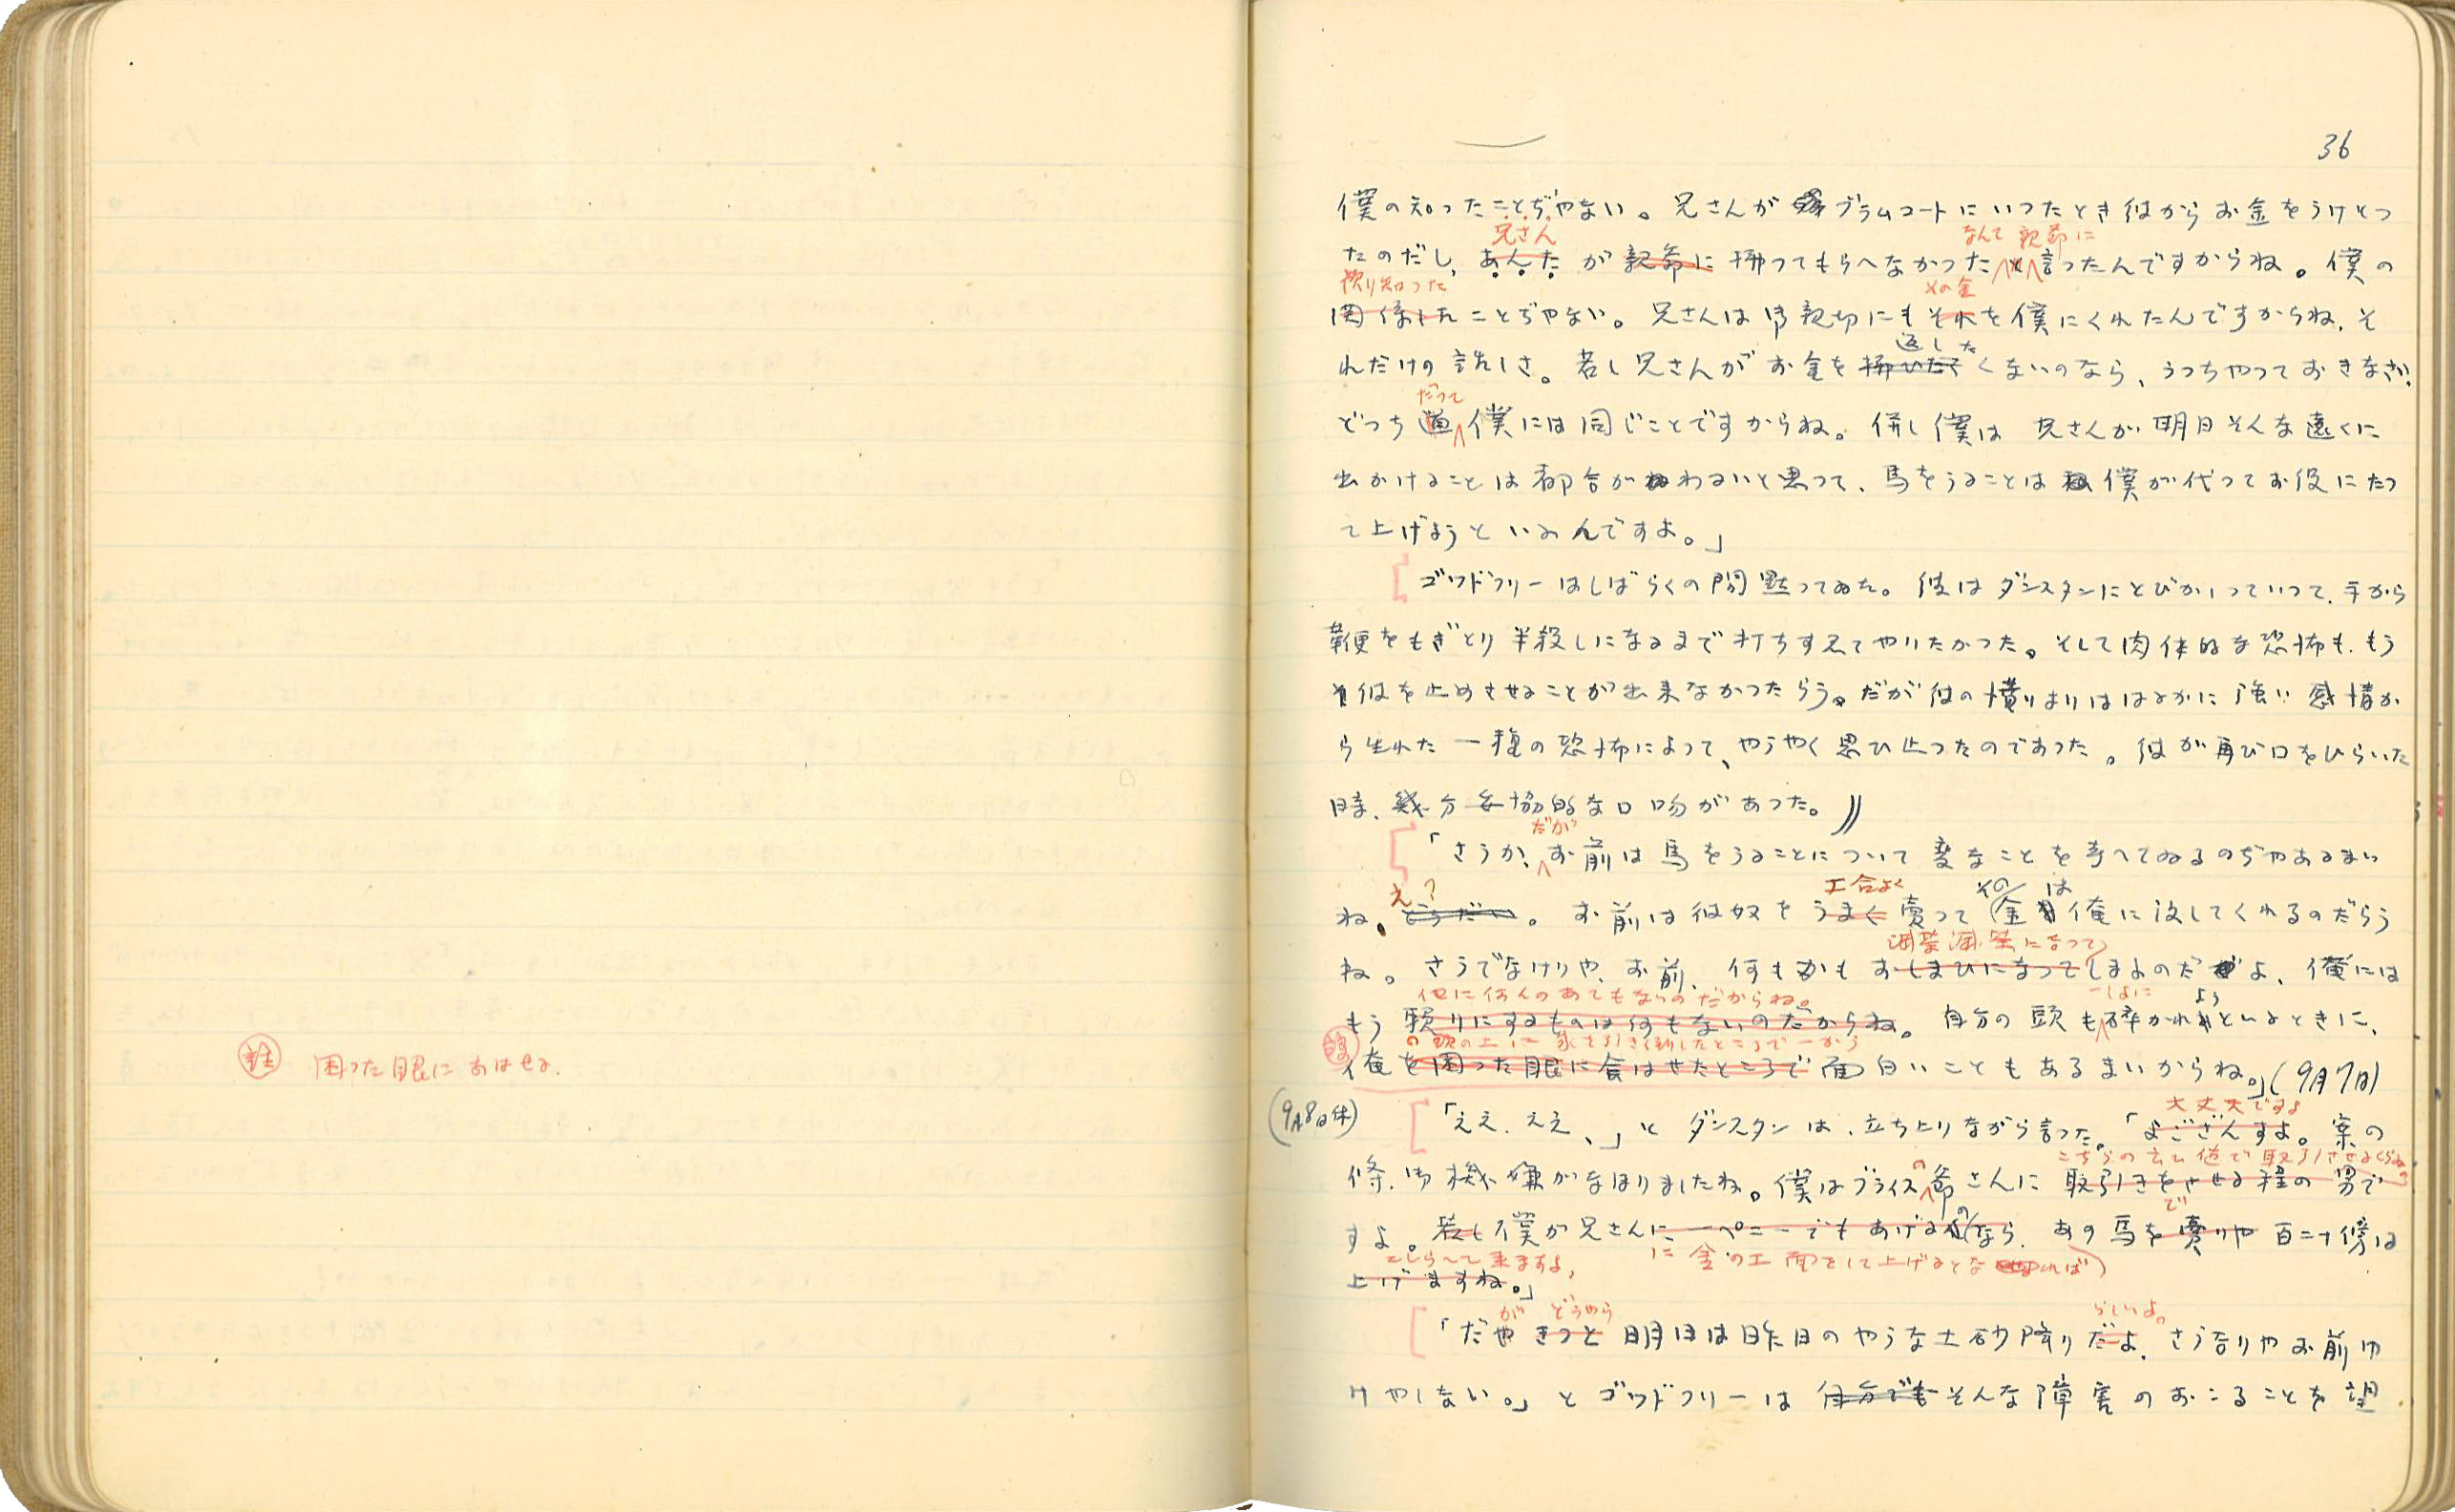 36
僕の知つたことぢやない。兄さんがブラムコートにいつたとき彼からお金をうけとつ
兄さん
なんて 親爺に
たのだし、あんたが親爺に拂つてもらへなかつたと言つたんですからね。僕の
預り知つた
その金
関係したことぢやない。兄さんは御親切にもそれを僕にくれたんですからね、そ
返した
れだけの話しさ。若し兄さんがお金を拂ひたくないのなら、うつちやつておきなさい。
だつて
どつち道僕には同じことですからね。併し僕は兄さんが明日そんな遠くに
出かけることは都合がわるいと思つて、馬をうることは僕が代つてお役にたつ
て上げようといふんですよ。」
ゴツドフリーはしばらくの間黙つてゐた。彼はダンスタンにとびかゝつていつて、手から
鞭をもぎとり半殺しになるまで打ちすゑてやりたかつた。そして肉体的な恐怖も、もう
彼を止めさせることが出来なかつたらう。だが彼の憤りよりははるかに強い感情か
ら生れた一種の恐怖によつて、やうやく思ひ止つたのであつた。彼が再び口をひらいた
時、幾分妥協的な口吻があつた。
だが
「さうか、お前は馬をうることについて変なことを考へてゐるのぢやあるまい
え?
工合よく
その は
ね。どうだい。お前は彼奴をうまく売つて金を俺に渡してくれるのだらう
滅茶滅茶になつて
ね。さうでなけりや、お前、何もかもおしまひになつてしまふのだよ、俺には
他に何んのあてもないのだからね。
一しよに よう
もう頼りにするものは何もないのだからね。自分の頭も碎かれといふときに、
の頭の上に家を引き倒したところで一から
註 困つた眼にあはせる.
俺を困つた眼に会はせたところで面白いこともあるまいからね。」(9月7日)
(9月8日休)
大丈夫ですよ
「ええ、ええ、」とダンスタンは、立ち上りながら言つた。「よござんすよ。案の
こちらの言ひ値で取引させるくらゐの
條、御機嫌がなほりましたね。僕はブライスの爺さんに取引きをさせる程の男で
で
すよ。若し僕が兄さんに一ペニーでもあげるのなら、あの馬を売りや百二十傍は
こしらへて来ますよ、
に金の工面をして上げるとなれば
上げますね。」
が どうやら
らしいよ。
「だやきつと明日は昨日のやうな土砂降りだよ、さうなりやお前ゆ
けやしない。」とゴツドフリーは自分でもそんな障害のおこることを望